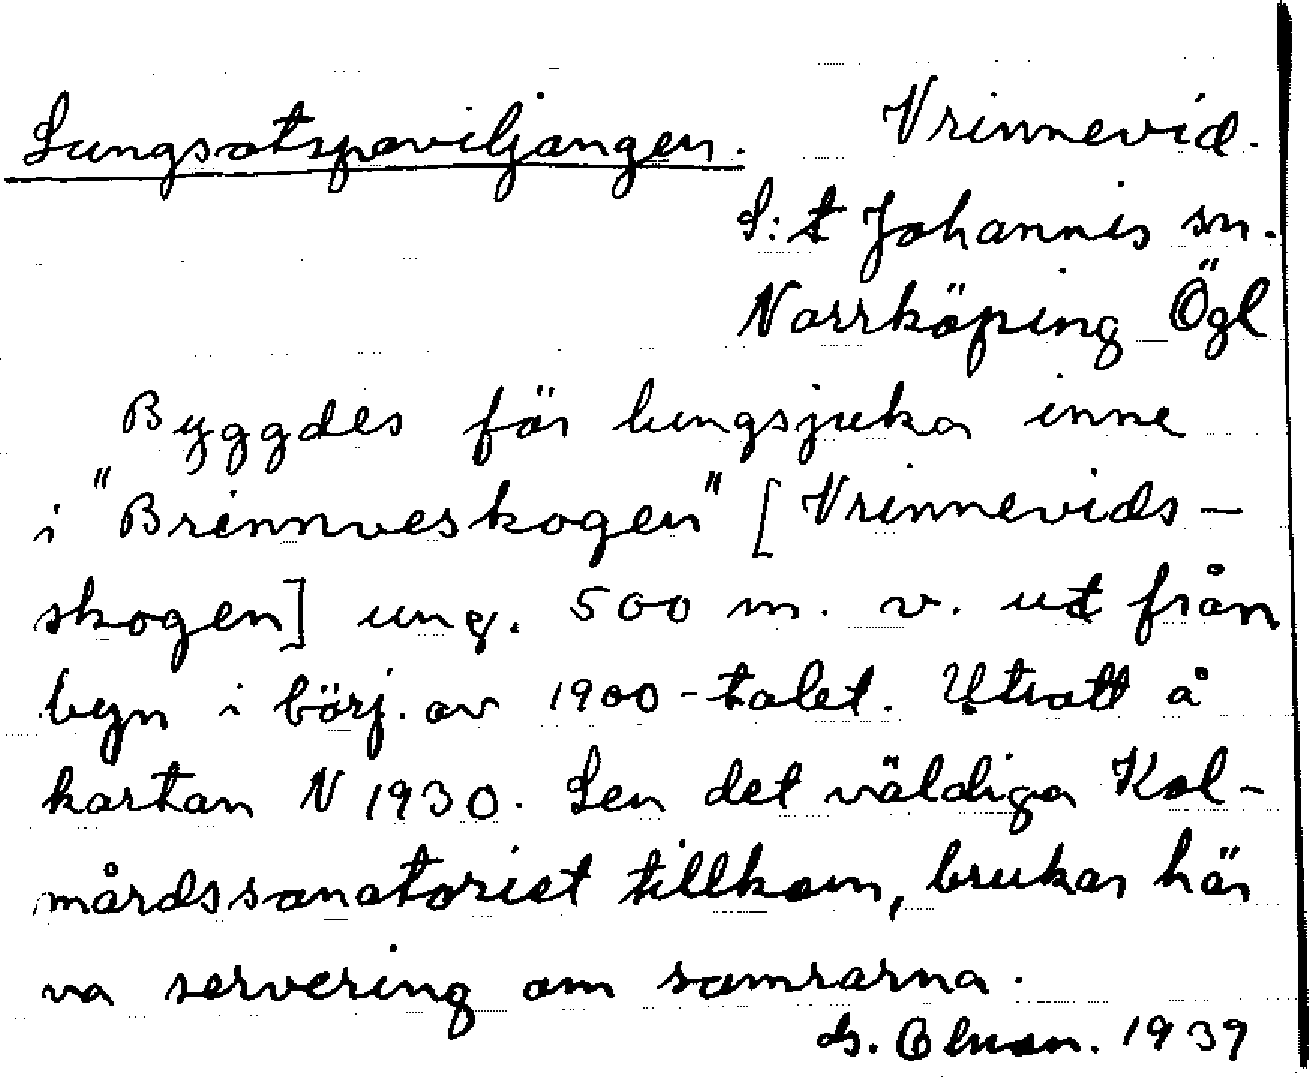 Lungsotspaviljongen. Vrinnevid.
S:t Johannis sn.
Norrköping Ögl
Byggdes för lungsjuka inne
i "Brinnveskogen" [Vrinnevids-
skogen] ung. 500 m. v. ut från
byn i börj. av 1900-talet. Utsatt å
kartan N 1930. Sen det väldiga Kol-
mårdssanatoriet tillkom, brukar här
va servering om somrarna.
1939